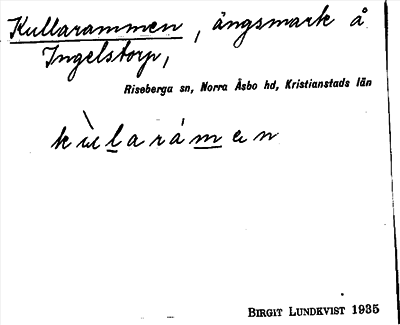 Kullarammen, ängsmark å
Ingelstorp,
Riseberga sn, Norra Åsbo hd, Kristianstads län
kùlarámen
BIRGIT LUNDKVIST 1935